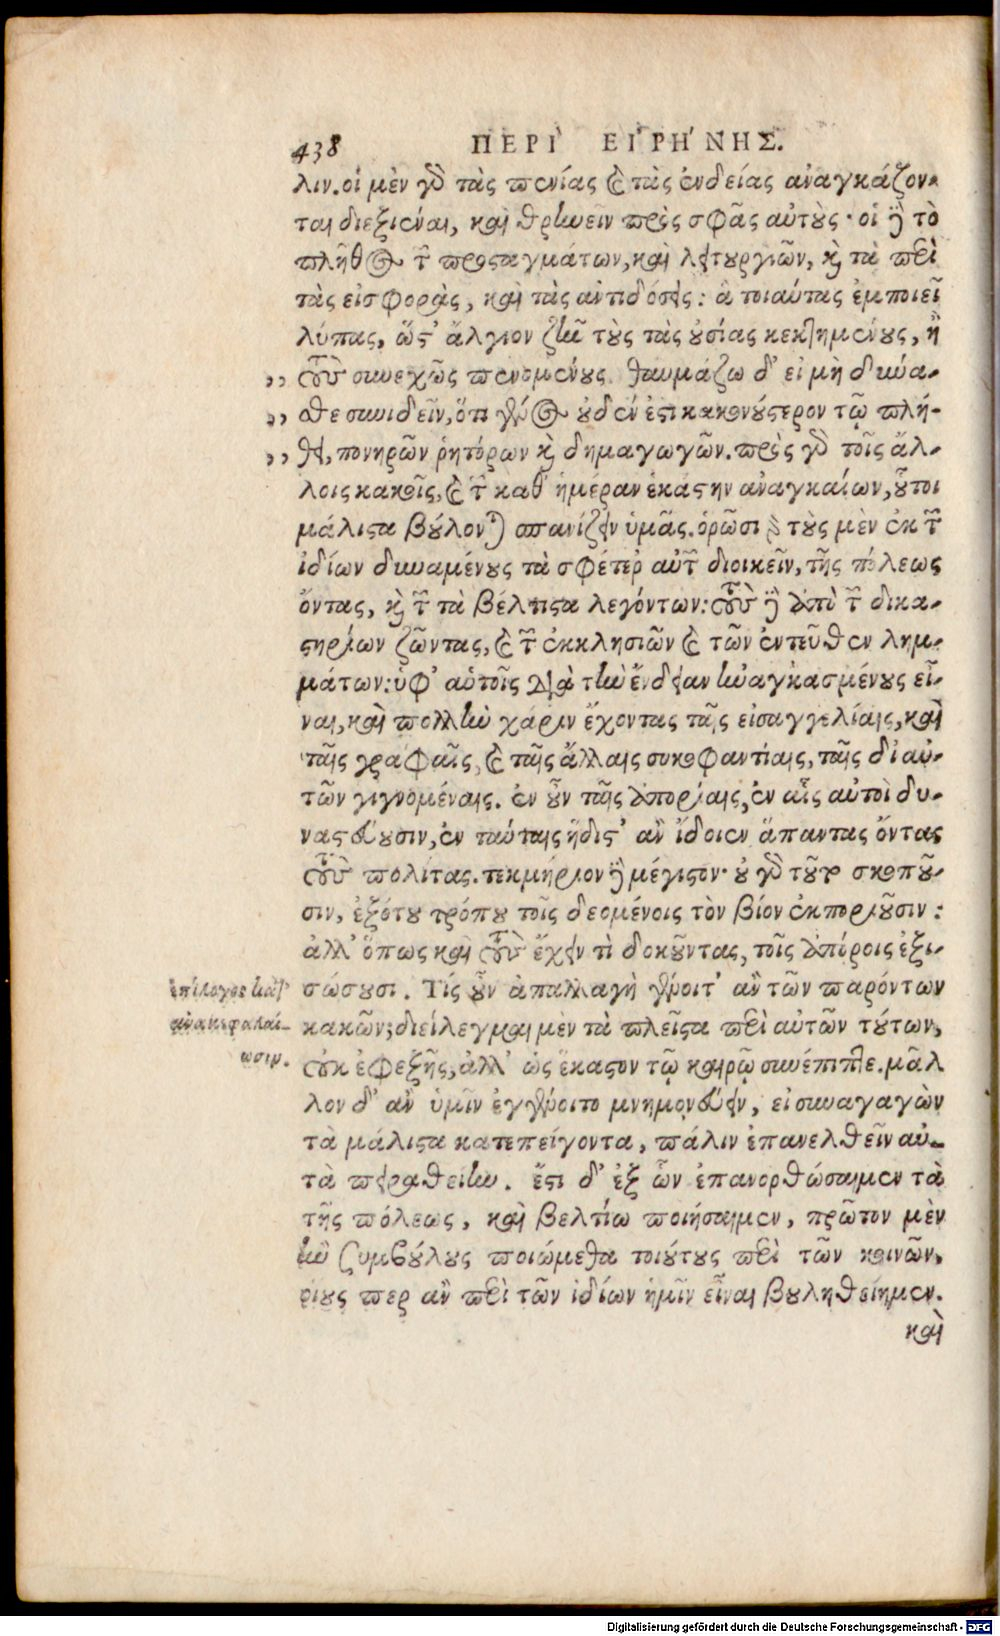 438 ΠΕΡῚ ΕἸΡΉΝΗΣ.
λιν. οἱ μὲν γὸ τὰς πενίας ϗ τὰς ἐνδείας ἀναγκάζον-
ται διεξιέναι, καὶ θρηνεῖν πρὸς σφᾶς αὐτοὺς· οἱ δὲ τὸ
πλῆθος τῶν προσταγμάτων, καὶ λειτουργιῶν, ϗ τὰ περὶ
τὰς εἰσφορὰς, καὶ τὰς ἀντιδόσεις: ἃ τοιαύτας ἐμποιεῖ
λύπας, ὥστ' ἄλγιον ζῆν τοὺς τὰς οὐσίας κεκτημένους, ἢ
,, τοὺς συνεχῶς πενομένους. θαυμάζω δ' εἰ μὴ δύνα-
,, σθε συνιδεῖν, ὅτι γένος οὐδέν ἐστι κακονούστερον τῷ πλή-
,, θει, πονηρῶν ῥητόρων ϗ δημαγωγῶν. πρὸς γὸ τοῖς ἄλ-
λοις κακοῖς, ϗ τῶν καθ' ἡμέραν ἑκάστην ἀναγκαίων, οὗτοι
μάλιστα βούλονται σπανίζειν ὑμᾶς. ὁρῶσι γὸ τοὺς μὲν ἐκ τῶν
ἰδίων δυναμένους τὰ σφέτερ' αὐτῶν διοικεῖν, τῆς πόλεως
ὄντας, ϗ τῶν τὰ βέλτιστα λεγόντων: τοὺς δὲ ἀπὸ τῶν δικα-
στηρίων ζῶντας, ϗ τῶν ἐκκλησιῶν ϗ τῶν ἐντεῦθεν λημ-
μάτων: ὑφ' αὑτοῖς διὰ τὴν ἔνδειαν ἠναγκασμένους εἶ-
ναι, καὶ πολλὴν χάριν ἔχοντας ταῖς εἰσαγγελίαις, καὶ
ταῖς γραφαῖς, ϗ ταῖς ἄλλαις συκοφαντίαις, ταῖς δι αὐ-
τῶν γιγνομέναις. ἐν οὖν ταῖς ἀπορίαις, ἐν αἷς αὐτοὶ δυ-
ναστεύουσιν, ἐν ταύταις ἥδιστ' ἂν ἴδοιεν ἅπαντας ὄντας
τοὺς πολίτας. τεκμήριον δὲ μέγιστον· οὐ γὸ τοῦτο σκοποῦ-
σιν, ἐξότου τρόπου τοῖς δεομένοις τὸν βίον ἐκποριοῦσιν:
ἀλλ' ὅπως καὶ τοὺς ἔχειν τὶ δοκοῦντας, τοῖς ἀπόροις ἐξι-
ἐπίλογος κατ'
σώσουσι. Τίς οὖν ἀπαλλαγὴ γένοιτ' ἂν τῶν παρόντων
ἀνακεφαλαί-
κακῶν; διείλεγμαι μὲν τὰ πλεῖστα περὶ αὐτῶν τούτων,
ωσιν.
οὐκ ἐφεξῆς, ἀλλ' ὡς ἕκαστον τῷ καιρῷ συνέπιπτε. μᾶλ
λον δ' ἂν ὑμῖν ἐγγένοιτο μνημονεύειν, εἰ συναγαγὼν
τὰ μάλιστα κατεπείγοντα, πάλιν ἐπανελθεῖν αὐ-
τὰ πειραθείην. ἔστι δ' ἐξ ὧν ἐπανορθώσαιμεν τὰ
τῆς πόλεως, καὶ βελτίω ποιήσαιμεν, πρῶτον μὲν
ἢν ξυμβούλους ποιώμεθα τοιούτους περὶ τῶν κοινῶν,
οἵους περ ἂν περὶ τῶν ἰδίων ἡμῖν εἶναι βουληθείημεν.
καὶ
Digitalisierung gefördert durch die Deutsche Forschungsgemeinschaft - DFG